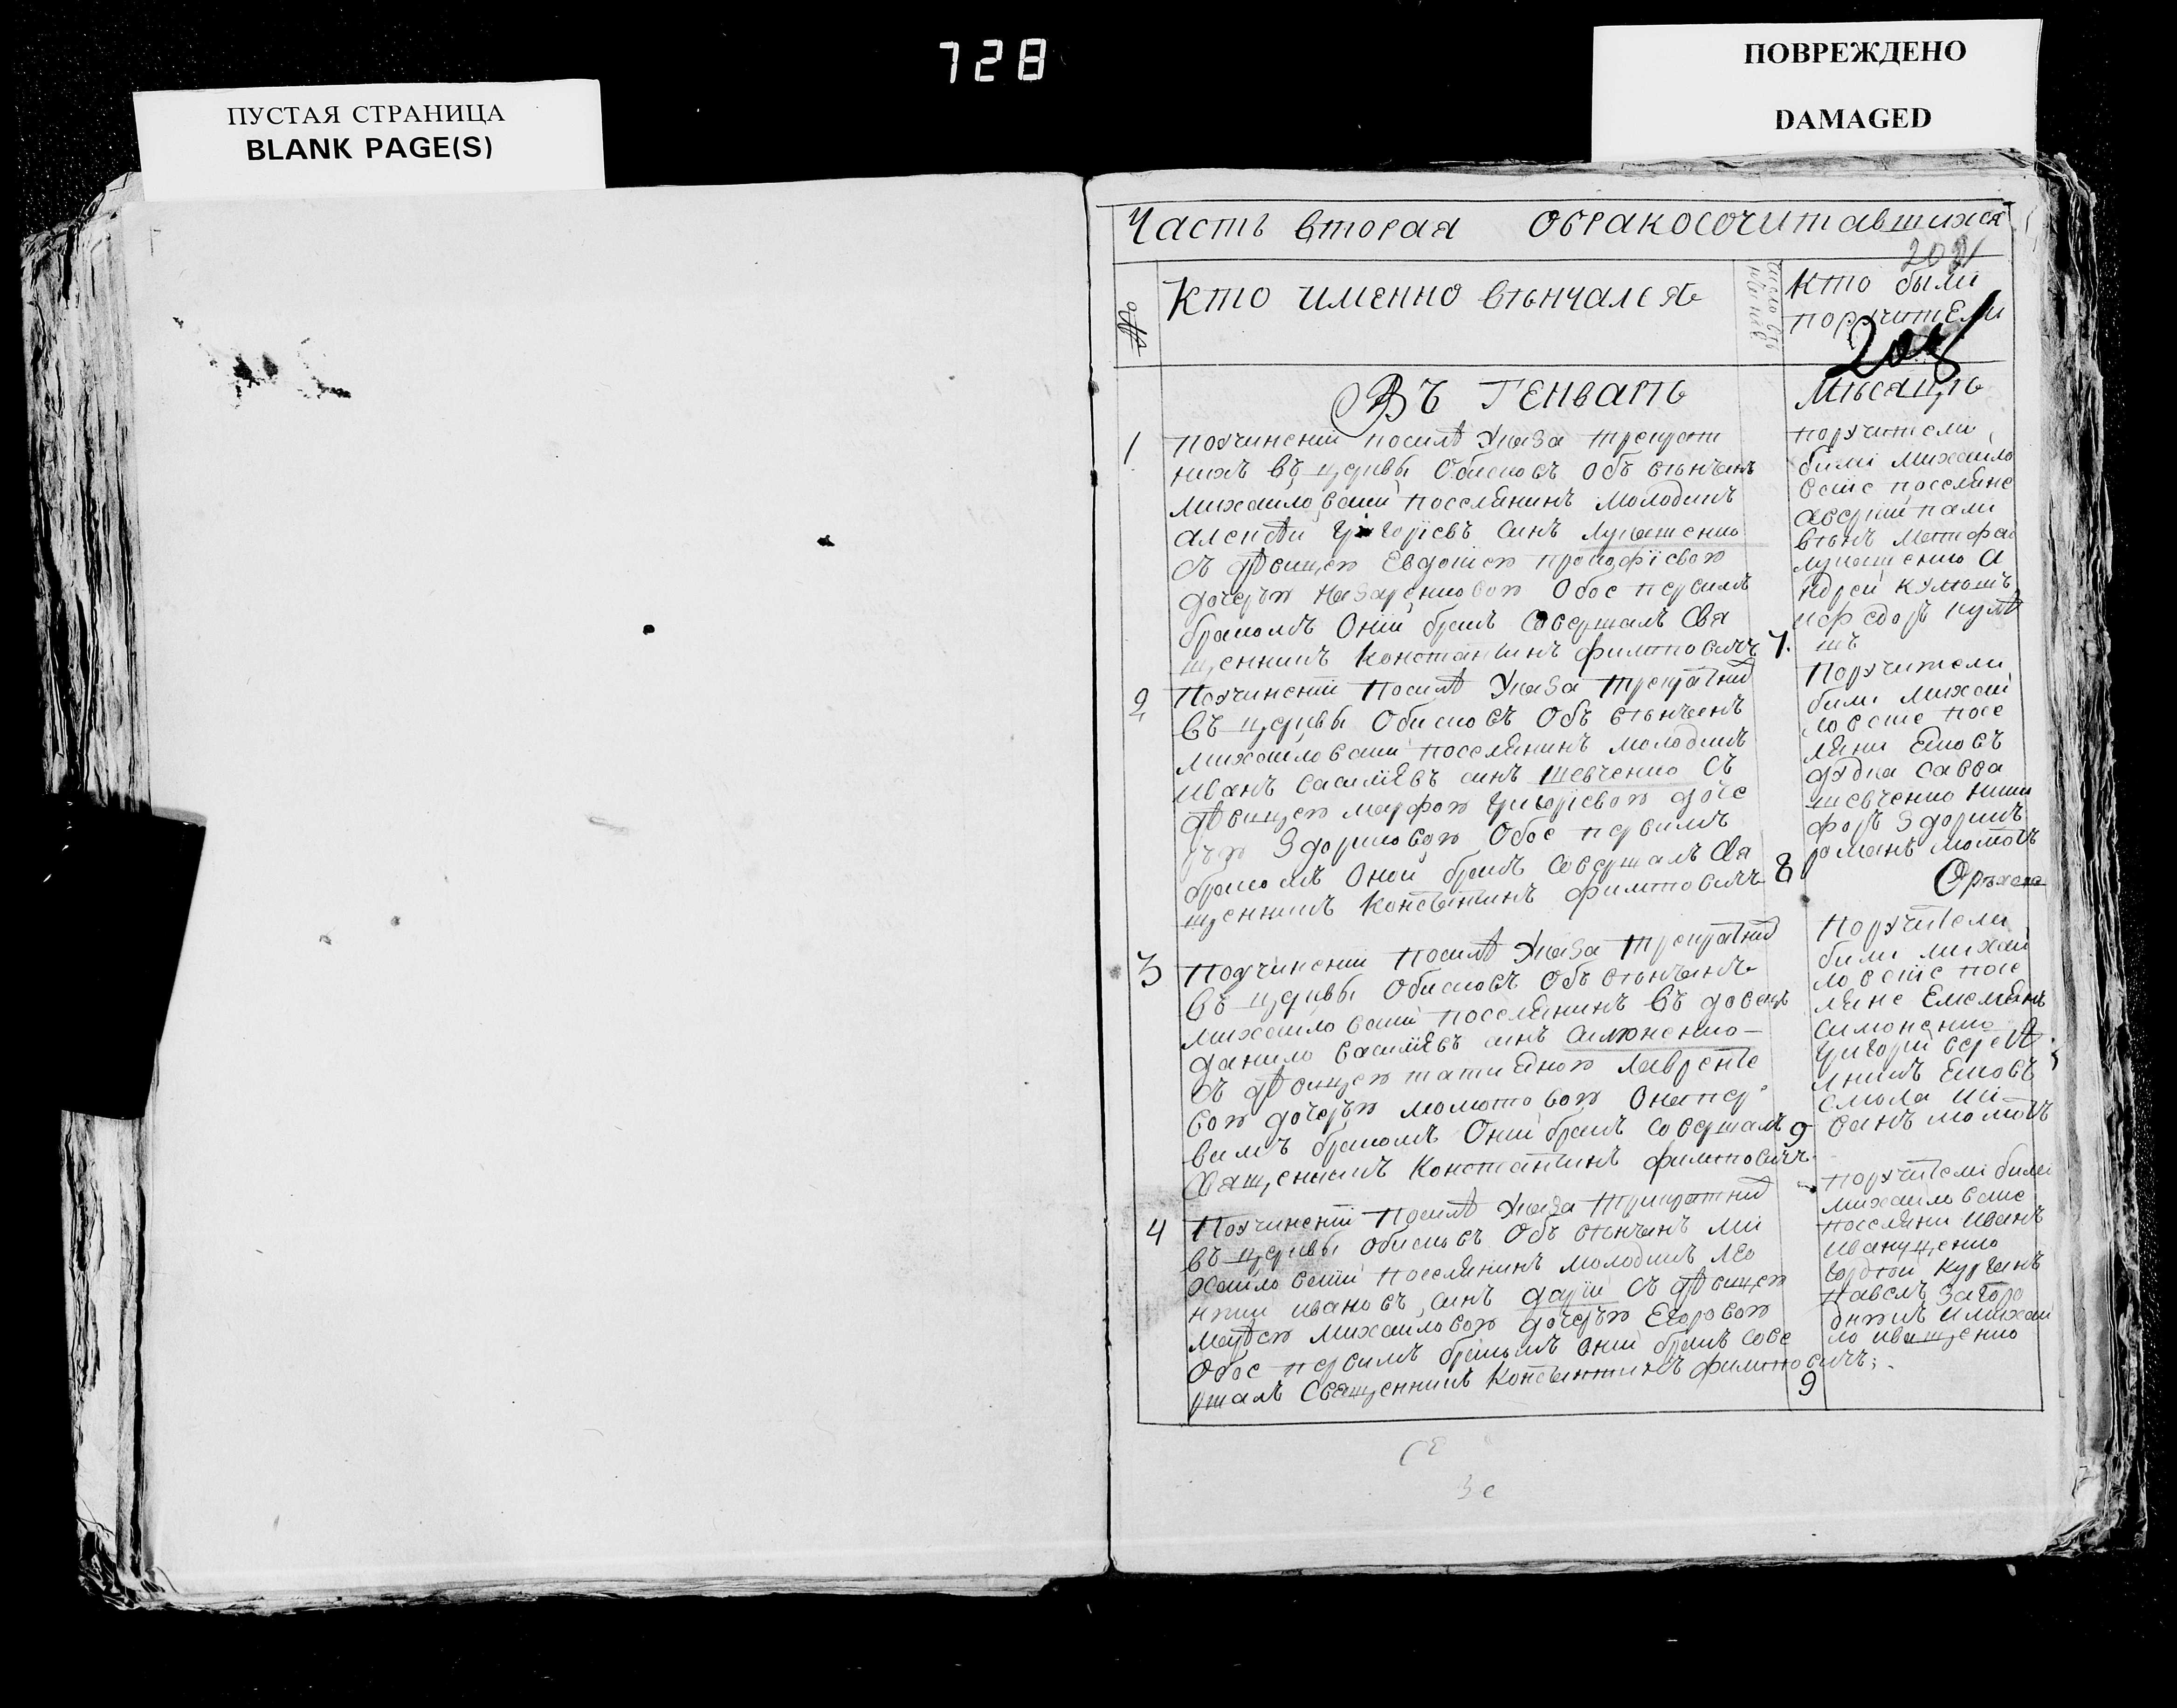 728
ПУСТАЯ СТРАНИЦА
BLANK PAGE(S)
ПОВРЕЖДЕНО
DAMAGED
Часть вторая обракосочитавшихся
№
Кто именно вѣнчался
Кто были
поручители
Въ Генварѣ
Мѣсяцѣ
1
починеній посилѣ Указа трекрат
нихъ въ церквы Обисковъ Обѣвѣнчанъ
михайловскій поселянинъ молодикъ
алексѣй григоріевъ синъ лукашенко
съ дѣвицею Евдокіею прокофіевою
дочерью назаренковою Обое первимъ
бракомъ Оній бракъ Совершалъ Свя
щенникъ Константинъ филиповичъ
7.
поручители
били михайло
вские поселяне
лукашенко а
ндрей
2
Починеній Посилѣ Указа трекратнихъ
въ церквы Обисковъ Обѣвѣнчанъ
михайловскій поселянинъ молодикъ
иванъ василіевъ синъ шевченко Съ
дѣвицею марфою григоріевою доче
рью Здориковою Обое первимъ
бракомъ Оной бракъ Совершалъ Свя
щенникъ Константинъ филиповичъ
8
Поручители
били михай
ловские посе
ляни Яковъ
дудка савва
шевченко ники
форъ Здорикъ
романъ
3
Починеній посилѣ Указа трекратнихъ
въ церквы Обисковъ Объвѣнчанъ
михайловскій поселянинъ въдовецъ
данило василіевъ синъ симоненко
съ дѣвицею татіяною лавренте
вою дочерью Онапер
вимъ бракомъ Оній бракъ Совершалъ
Священникъ Константинъ филиповичъ
9
Поручители
били михай
ловскіе посе
ляне Емелянъ
симоненко
григорій
Яковъ
4
Починеній Посилѣ Указа трикратних
въ церквы обисковъ Объ вѣнчанъ ми
хайловскій поселянинъ молодикъ лео
нтій ивановъ синъ съ дѣвицею
михайловою дочерью Егоровою
Обое первимъ бракомъ Оній бракъ сове
ршалъ Священникъ Константинъ филиповичъ;
9
поручители били
михайловские
поселяни иванъ
иванущенко
павелъ Загоро
днихъ и михай
ло иващенко